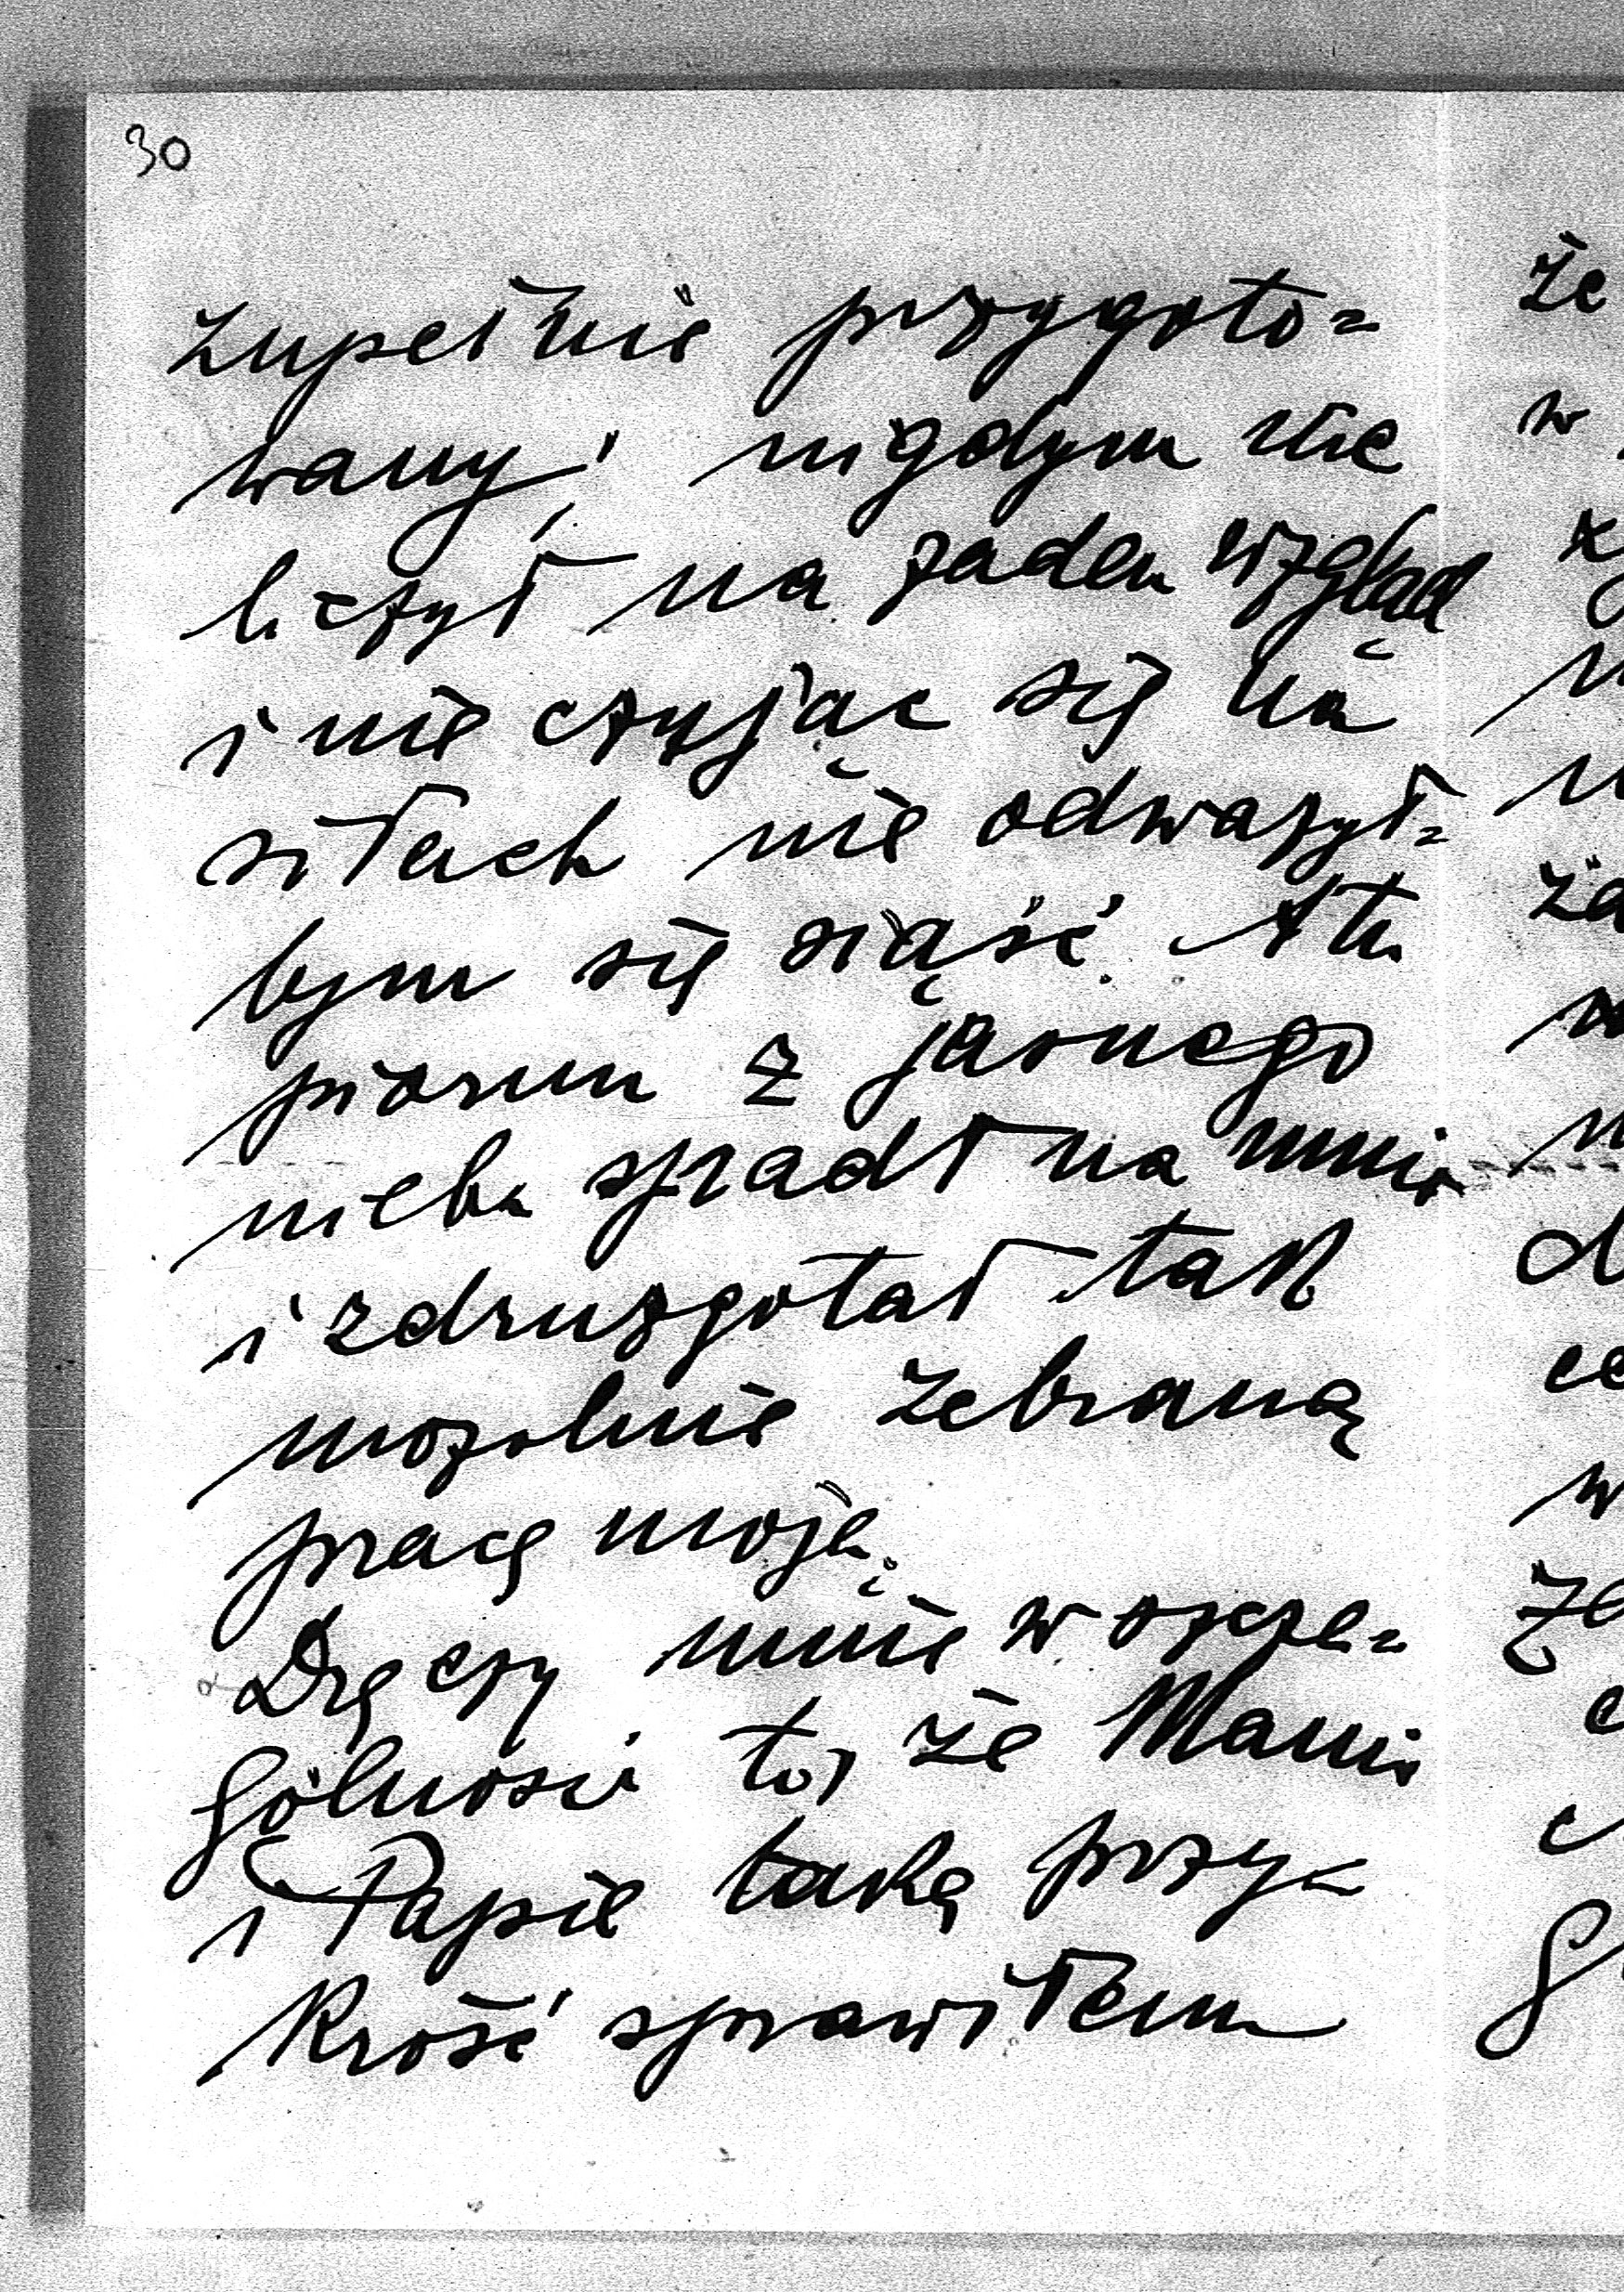 30
zupełnie przygoto=
wany, nigdym nie
liczył na żaden wzgląd
i nie czując się na
siłach nie odważył=
bym się siąść. A tu
piorun z jasnego
nieba spadł na mnie
i zdruzgotał tak
mozolnie zebraną
pracę moją.
Dręczy mnie w szcze=
gólności to, że Mamie
i Papie taką przy=
krość sprawiłem
że
w